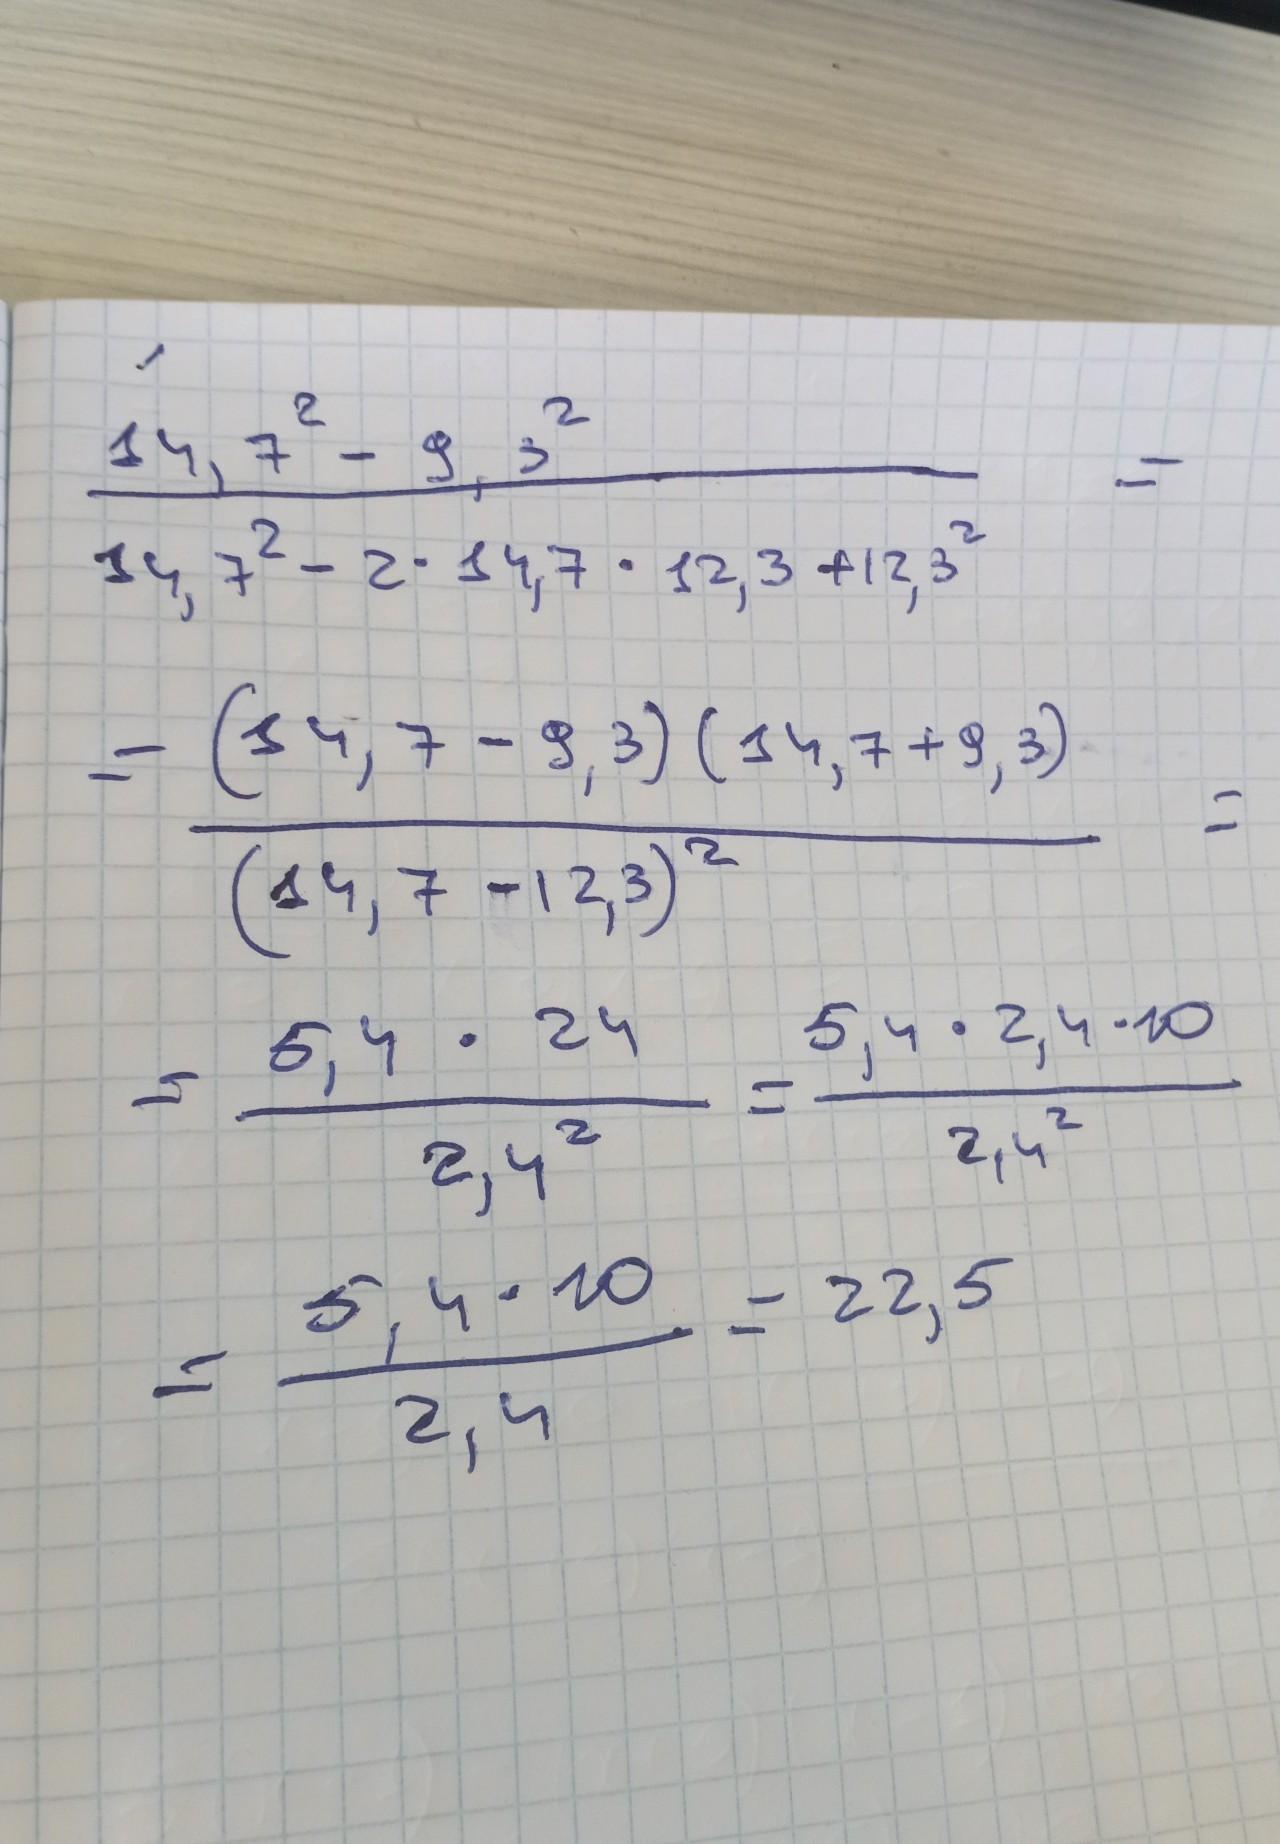 14,7² - 9,3² =
14,7² - 2 · 14,7 · 12,3 + 12,3²
= (14,7 - 9,3) (14,7 + 9,3) =
(14,7 - 12,3)²
= 5,4 · 24 = 5,4 · 2,4 · 10
2,4² 2,4²
= 5,4 · 10 = 22,5
2,4